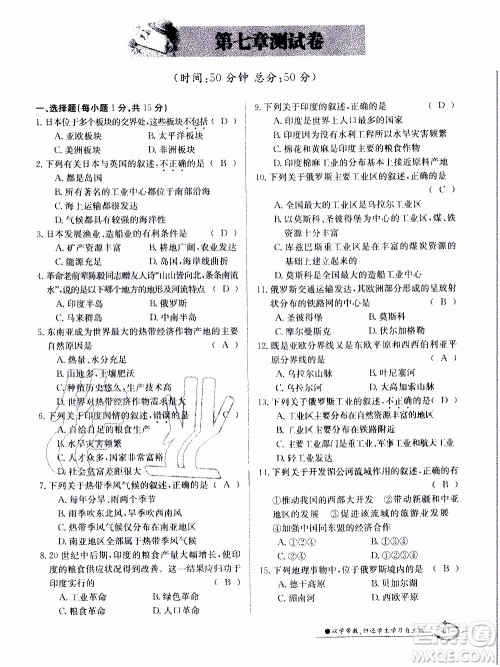 第七章测试卷
(时间:50分钟 总分:50分)
一、选择题(每小题1分,共15分)
1. 日本位于多个板块的交界处,这些板块不包括( D )
A. 亚欧板块 B. 太平洋板块
C. 美洲板块 D. 非洲板块
2. 下列有关日本与英国的叙述,不正确的是 ( B )
A. 都是岛国
B. 所有著名的工业中心都位于南部沿海
C. 海上运输都很发达
D. 都与大陆隔海相望
3. 日本发展渔业、造船业的有利条件是 ( D )
A. 矿产资源丰富 B. 耕地广阔、农业发达
C. 能源充足 D. 海岸线曲折、多优良港湾
4. 革命老前辈陈毅同志赠友人诗“山山皆向北,条条南流
水”,说的是哪里的地形及河流特点 ( D )
A. 印度半岛 B. 俄罗斯
C. 马来群岛 D. 中南半岛
5. 东南亚成为世界最大的热带经济作物产地的主要
自然原因是 ( A )
A. 热量、水分充足
B. 土壤肥沃
C. 种植历史悠久,劳动力丰富
D. 世界对热带经济作物需求量大
6. 下列关于印度国情的叙述,错误的是 ( A )
A. 自给自足的粮食生产
B. 水旱灾害频繁
C. 人才众多,人口素质高
D. 贫富差距非常大
7. 下列关于热带季风气候的叙述,正确的是 ( C )
A. 热带季风气候,雨两个季节
B. 雨季吹东北风,旱季吹西南风
C. 热带季风气候盛行的地区,水旱灾害频繁
D. 主要分布在南亚地区
8. 20世纪中后期,印度的粮食产量大幅增长,使
粮食供应状况得到了改善。这一结果应归功于
印度实行了 ( B )
A. 工业革命 B. 绿色革命
C. 农业革命 D. 人口革命
9. 下列关于印度的叙述,正确的是 ( D )
A. 印度是世界上人口最多的国家
B. 印度因为没有水利工程所以水旱灾害频繁
C. 棉花和黄麻是印度主要的粮食作物
D. 印度棉麻毛纺织工业的中心是孟买
10. 下列关于俄罗斯主要工业区的叙述,正确的是
( C )
A. 全国最大的工业区是乌拉尔工业区
B. 以莫斯科、圣彼得堡为中心的工业区,煤、铁
资源丰富
C. 库兹巴斯工业区是在丰富的煤炭资源的
基础上建立起来的
D. 莫斯科是全国最大的造船工业中心
11. 俄罗斯交通发达,其欧洲部分形成了呈放射
状分布的铁路网的中心是 ( B )
A. 圣彼得堡 B. 莫斯科
C. 摩尔曼斯克 D. 新西伯利亚
12. 既是亚欧分界线又是东欧平原和西西伯利亚平
原分界线的是 ( A )
A. 乌拉尔山脉 B. 叶尼塞河
C. 勒拿河 D. 大高加索山脉
13. 下列关于俄罗斯工业的叙述,不正确的是( A )
A. 主要分布于亚洲矿产资源丰富的地区
B. 分布于欧洲部分
C. 以重工业为主,重工业、军事工业和航天
D. 轻工业相对落后
14. 下列关于开发湄公河流域作用的叙述,正确的是
( D )
①推动我国的西部大开发 ②带动新疆和西藏地
区的发展 ③促进该流域的旅游业发展
④加强中国同东盟的经济合作
A. ①②④ B. ②③④
C. ①②③ D. ①③④
15. 下列地理事物中,与俄罗斯无关的是 ( A )
A. 德干高原 B. 贝加尔湖
C. 伏尔加河 D. 西伯利亚